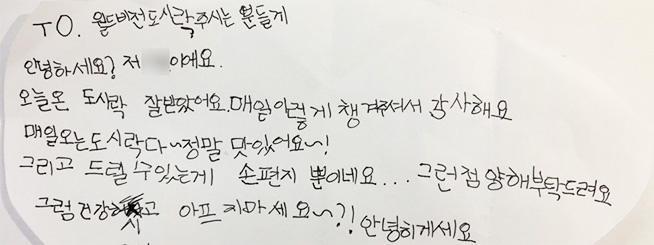 TO. 월드비전도시락주시는 분들게
안녕하세요? 저 이에요.
오늘온 도시락 잘받았어요. 매일이렇게 챙겨주셔서 감사해요
매일오는도시락다~정말 맛있어요~!
그리고 드릴 수있는게 손편지 뿐이네요... 그런점 양해부탁드려요
그럼건강하시고 아프지마세요~?! 안녕히게세요